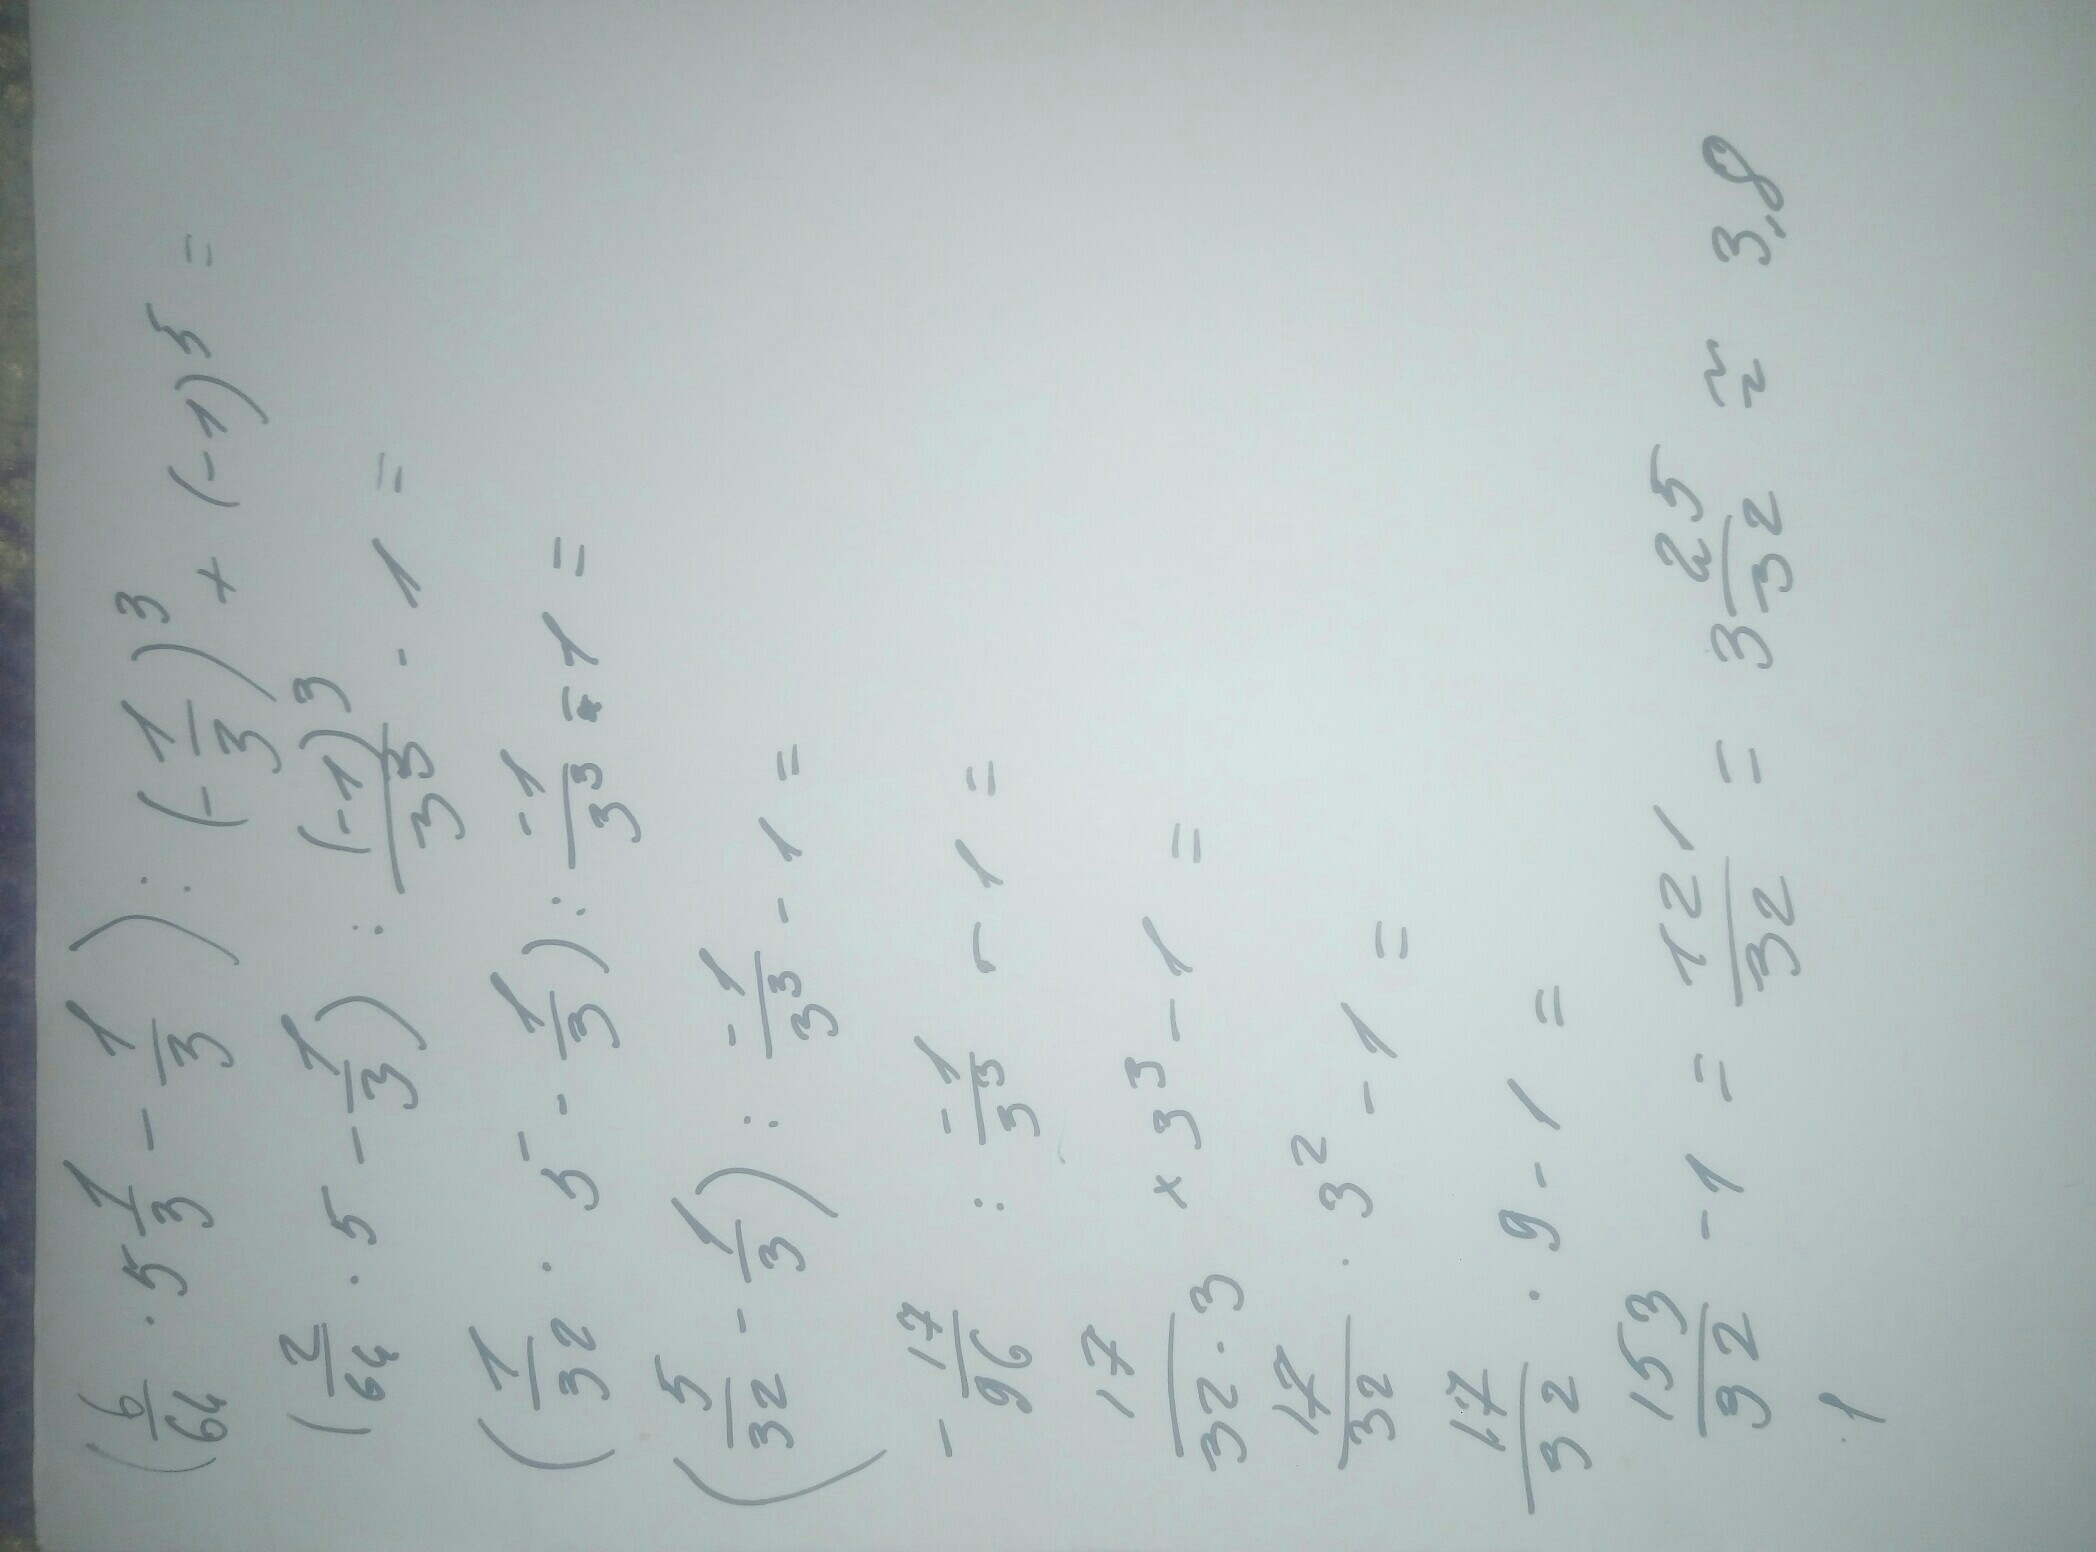 (6/64 · 5 1/3 - 1/3) : (-1/3)³ + (-1)⁵ =
(2/64 · 5 - 1/3) : (-1)³/3³ - 1 =
(1/32 · 5 - 1/3) : -1/3³ - 1 =
(5/32 - 1/3) : -1/3³ - 1 =
- 17/96 : -1/3³ - 1 =
17/32·3 × 3³ - 1 =
17/32 · 3² - 1 =
17/32 · 9 - 1 =
153/32 - 1 = 121/32 = 3 25/32 ≈ 3,8
1